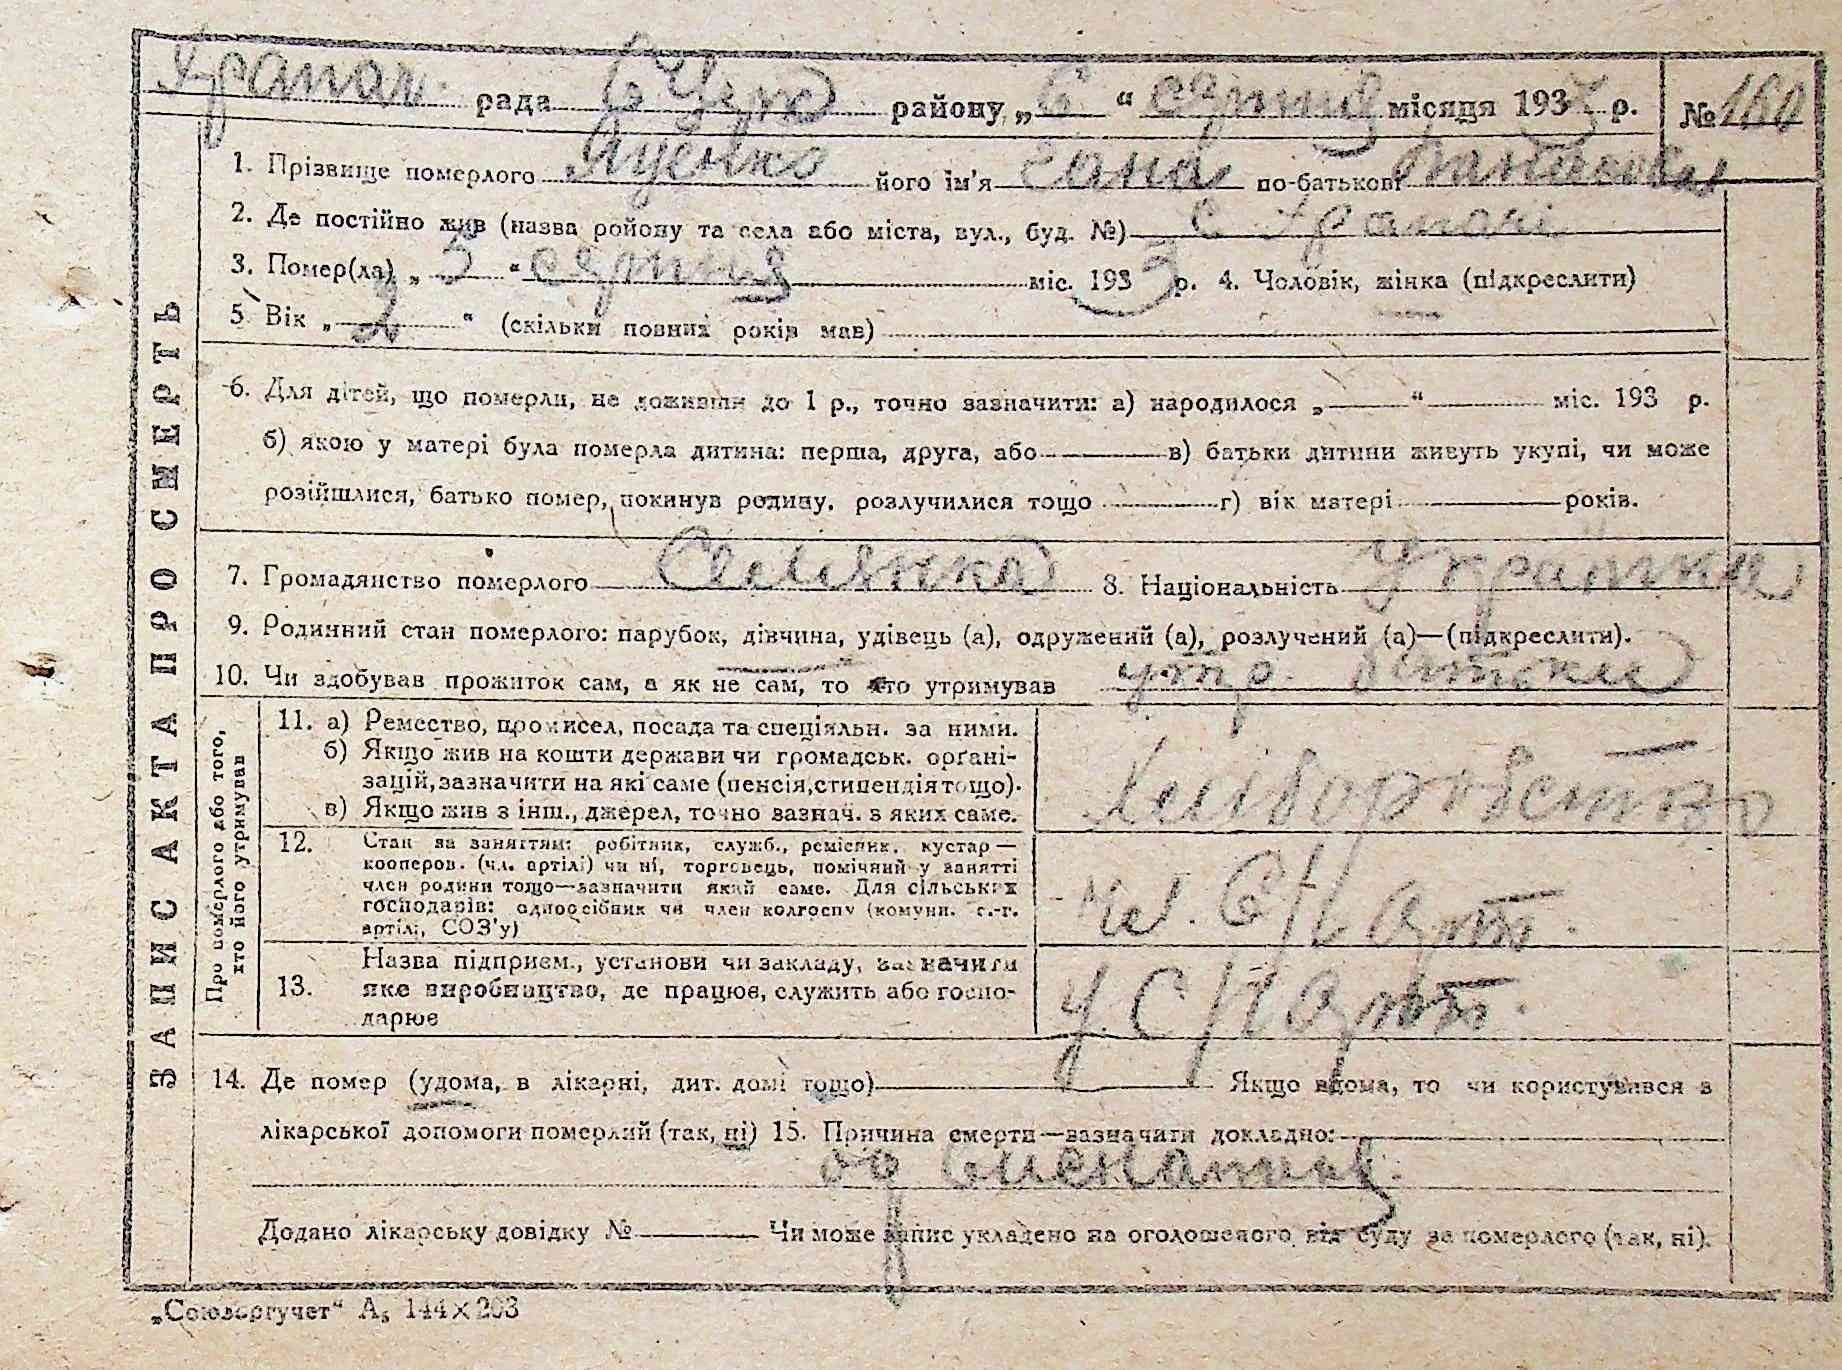 Храпач. рада Б Церк району „6 “ серпня місяця 1933 р. № 160
1. Прізвище померлого Яценко його ім'я Ганна по-батькові
2. Де постійно жив (назва ройону та села або міста, вул., буд. №) с Храпачі
3. Помер(ла) „ 5 “ серпня міс. 1933 р. 4. Чоловік, жінка (підкреслити)
5. Вік „ 2 “ (скільки повних років мав)
6. Для дітей, що померли, не доживши до 1 р., точно зазначити: а) народилося „ “ міс. 193 р.
б) якою у матері була померла дитина: перша, друга, або в) батьки дитини живуть укупі, чи може
розійшлися, батько помер, покинув родину, розлучилися тощо г) вік матері років.
7. Громадянство померлого Селянка 8. Національність Українка
9. Родинний стан померлого: парубок, дівчина, удівець (а), одружений (а), розлучений (а)—(підкреслити).
10. Чи здобував прожиток сам, а як не сам, то хто утримував утр. батьки
ЗАПИС АКТА ПРО СМЕРТЬ
Про померлого або того, хто його утримував
11. а) Ремество, промисел, посада та спеціяльн. за ними.
б) Якщо жив на кошти держави чи громадськ. орґані-
зацій, зазначити на які саме (пенсія, стипендія тощо).
в) Якщо жив з інш., джерел, точно зазнач. з яких саме.
Хліборобство
12. Стан за заняттям: робітник, служб., ремісник, кустар—
кооперов. (чл. артілі) чи ні, торговець, помічний у занятті
член родини тощо—зазначити який саме. Для сільських
господарів: одноосібник чи член колгоспу (комуни. с.-г.
артілі, СОЗ'у)
чл. С/Г Арт.
13. Назва підприєм., установи чи закладу, зазначити
яке виробництво, де працює, служить або госпо-
дарює
у С/Г Арт.
14. Де помер (удома, в лікарні, дит. домі тощо) Якщо вдома, то чи користувався з
лікарської допомоги померлий (так, ні) 15. Причина смерти—зазначити докладно:
од виснаття.
Додано лікарську довідку № Чи може запис укладено на оголошеного від суду за померлого (так, ні).
„Союзоргучет“ А₅ 144×203